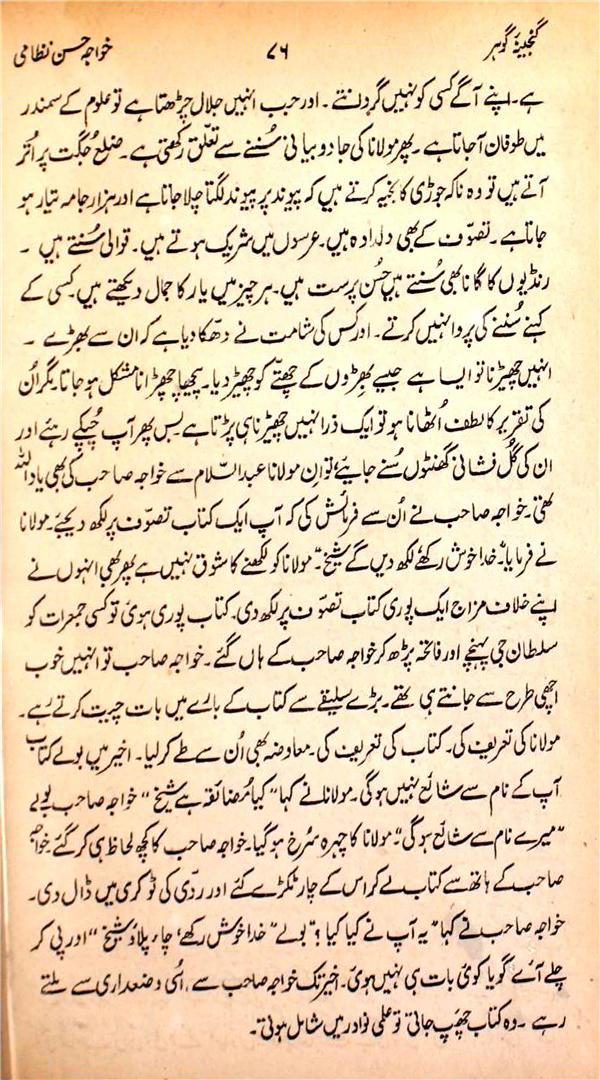 گنجینۂ گوہر ۷۶ خواجہ حسن نظامی
ہے۔ اپنے آگے کسی کو نہیں گردانتے ۔ اور جب انہیں جلال چڑھتا ہے تو علوم کے سمندر
میں طوفان آ جاتا ہے ۔ پھر مولانا کی جادو بیانی سُننے سے تعلّق رکھتی ہے ۔ ضلع جُگت پر اُتر
آتے ہیں تو وہ ناکہ جوڑی کا بخیہ کرتے ہیں کہ پیوند پر پیوند لگتا چلا جاتا ہے اور ہزار جامہ تیار ہو
جاتا ہے ۔ تصوّف کے بھی دلدادہ ہیں۔ عرسوں میں شریک ہوتے ہیں۔ قوالی سُنتے ہیں ۔
رنڈیوں کا گانا بھی سُنتے ہیں حُسن پرست ہیں۔ ہر چیز میں یار کا جمال دیکھتے ہیں۔ کسی کے
کہنے سُننے کی پروا نہیں کرتے ۔ اور کس کی شامت نے دھکا دیا ہے کہ ان سے بھڑے ۔
انہیں چھیڑنا تو ایسا ہے جیسے بھڑوں کے چھتّے کو چھیڑ دیا۔ پیچھا چھڑانا مشکل ہو جاتا۔ مگر اُن
کی تقریر کا لطف اُٹھانا ہو تو ایک ذرا انہیں چھیڑنا ہی پڑتا ہے۔ بس پھر آپ چُپکے رہئے اور
ان کی گُل فشانی گھنٹوں سُنے جایئے تو اِن مولانا عبدالسّلام سے خواجہ صاحب کی بھی یاد اللہ
تھی۔ خواجہ صاحب نے اُن سے فرمائش کی کہ آپ ایک کتاب تصوّف پر لکھ دیجئے۔ مولانا
نے فرمایا "خدا خوش رکھے لکھ دیں گے شیخ" مولانا کو لکھنے کا شوق نہیں ہے پھر بھی انہوں نے
اپنے خلاف مزاج ایک پوری کتاب تصوّف پر لکھ دی۔ کتاب پوری ہوئی تو کسی جمعرات کو
سلطان جی پہنچے اور فاتحہ پڑھ کر خواجہ صاحب کے ہاں گئے ۔ خواجہ صاحب تو انہیں خوب
اچھی طرح سے جانتے ہی تھے۔ بڑے سلیقے سے کتاب کے بارے میں بات چیت کرتے رہے۔
مولانا کی تعریف کی۔ کتاب کی تعریف کی۔ معاوضہ بھی اُن سے طے کر لیا۔ اخیر میں بولے کتاب
آپ کے نام سے شائع نہیں ہوگی۔ مولانا نے کہا "کیا مُضائقہ ہے شیخ" خواجہ صاحب بولے
"میرے نام سے شائع ہوگی"۔ مولانا کا چہرہ سُرخ ہو گیا۔ خواجہ صاحب کا کچھ لحاظ ہی کر گئے خواجہ
صاحب کے ہاتھ سے کتاب لے کر اس کے چار ٹکڑے کئے اور ردّی کی ٹوکری میں ڈال دی۔
خواجہ صاحب نے کہا "یہ آپ نے کیا کیا؟" بولے "خدا خوش رکھے، چاء پلاؤ شیخ" اور پی کر
چلے آئے گویا کوئی بات ہی نہیں ہوئی۔ اخیر تک خواجہ صاحب سے اُسی وضعداری سے ملتے
رہے ۔ وہ کتاب چھپ جاتی تو علمی نوادر میں شامل ہوتی۔